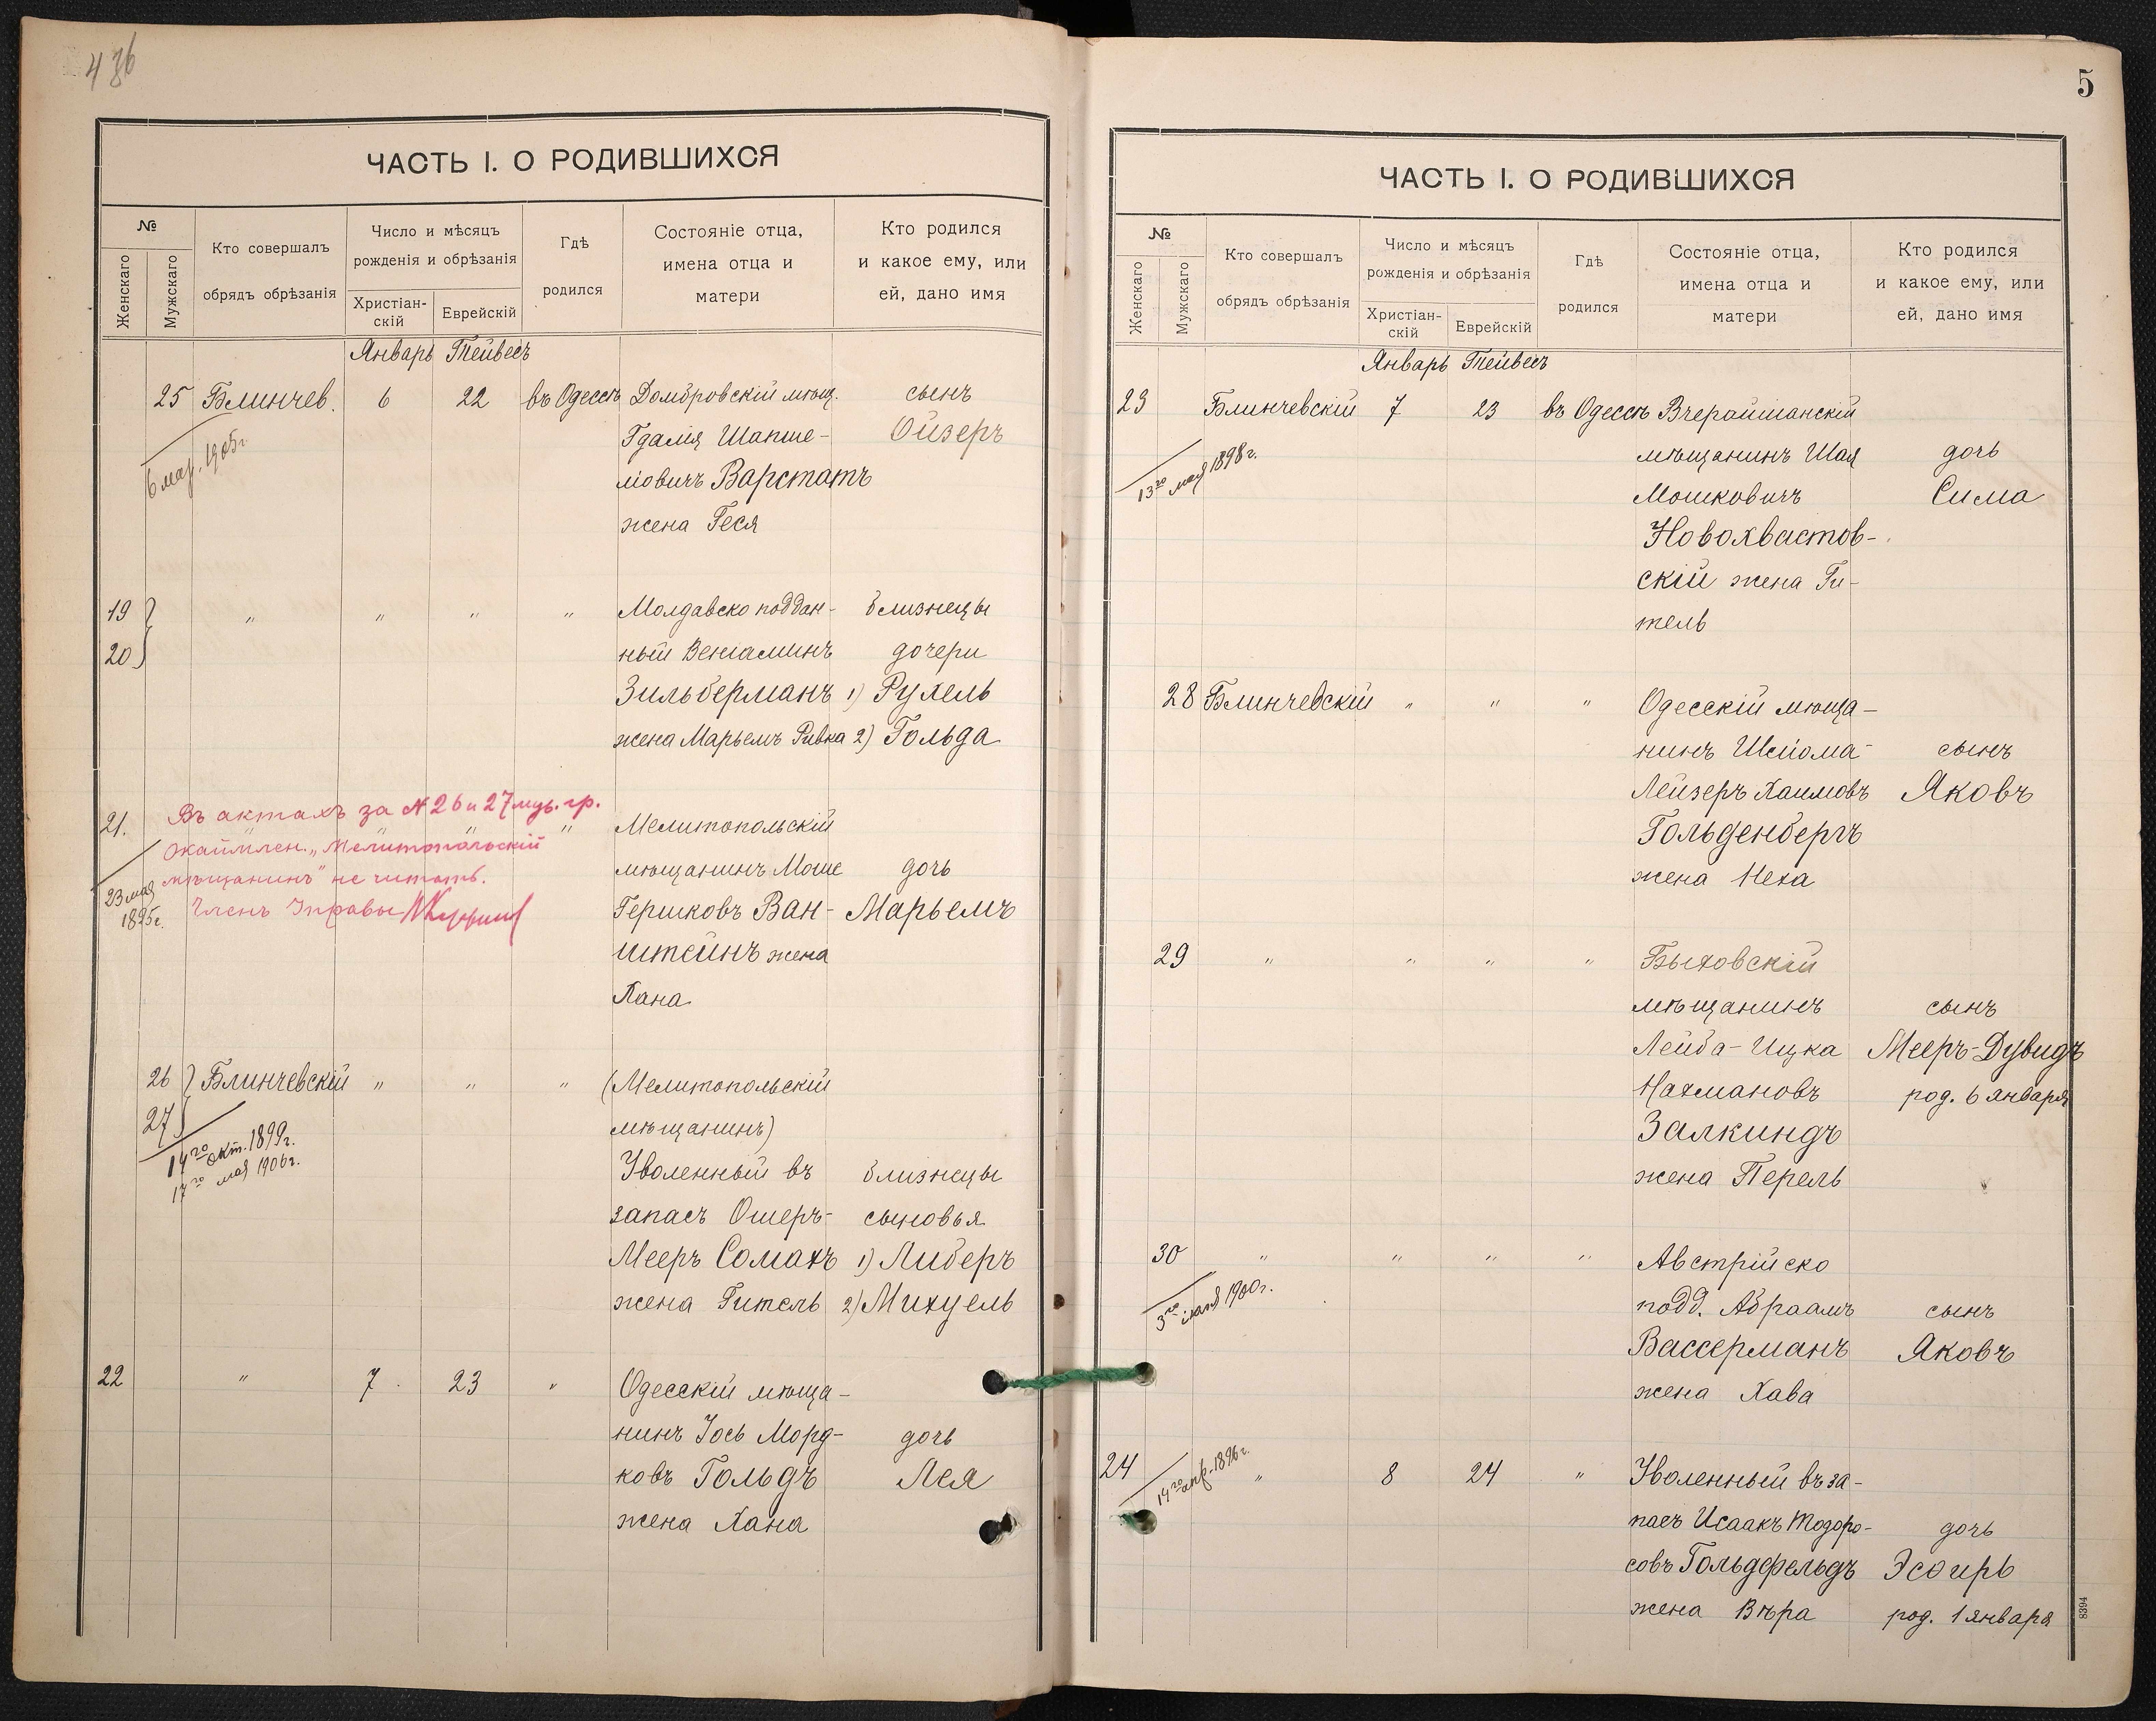 436
ЧАСТЬ I. О РОДИВШИХСЯ
№
Женскаго
Мужскаго
Кто совершалъ
обрядъ обрѣзанія
Число и мѣсяцъ
рожденія и обрѣзанія
Христіан-
скій
Еврейскій
Гдѣ
родился
Состояніе отца,
имена отца и
матери
Кто родился
и какое ему, или
ей, дано имя
Январь Тейвесъ
25 Блинчев. 6 22 въ Одессѣ Домбровскій мѣщ. сынъ
Гдалія Шапше- Ойзеръ
6 мар. 1905г
ліовичъ Варстатъ
жена Геся
19 " " " " Молдавско поддан- близнецы
20 ный Веніаминъ дочери
Зильберманъ 1) Рухель
жена Марьемъ Ривка 2) Гольда
21. Въ актахъ за № 26 и 27 муж. гр. " Мелитопольскій
окаймлен. "Мелитопольскій
мѣщанинъ Моше дочь
мѣщанинъ" не читать.
23 мая
1895г.
Членъ Управы
Гершковъ Ван- Марьемъ
штейнъ жена
Хана
26 Блинчевскій " " " (Мелитопольскій
27 мѣщанинъ)
14го окт. 1899г.
17го мая 1906г.
Уволенный въ близнецы
запасъ Ошеръ- сыновья
Мееръ Сомахъ 1) Либеръ
жена Гитель 2) Михуель
22 " 7 23 " Одесскій мѣща-
нинъ Іось Морд- дочь
ковъ Гольдъ Лея
жена Хана
5
ЧАСТЬ I. О РОДИВШИХСЯ
№
Женскаго
Мужскаго
Кто совершалъ
обрядъ обрѣзанія
Число и мѣсяцъ
рожденія и обрѣзанія
Христіан-
скій
Еврейскій
Гдѣ
родился
Состояніе отца,
имена отца и
матери
Кто родился
и какое ему, или
ей, дано имя
Январь Тейвесъ
23 Блинчевскій 7 23 въ Одессѣ Вчерайшанскій
мѣщанинъ Шая дочь
13го мая 1898г.
Мошковичъ Сима
Новохвастов-
скій жена Ги-
тель
28 Блинчевскій " " " Одесскій мѣща-
нинъ Шлойма- сынъ
Лейзеръ Хаимовъ Яковъ
Гольденбергъ
жена Неха
29 " " " " Быховскій
мѣщанинъ сынъ
Лейба-Ицка Мееръ-Дувидъ
Нахмановъ род. 6 января
Залкиндъ
жена Перель
30 " " " " Австрійско
3го мая 1900г.
подд. Абраамъ сынъ
Вассерманъ Яковъ
жена Хава
24 14го апр. 1896г. " 8 24 " Уволенный въ за-
пасъ Исаакъ Тодоро- дочь
совъ Гольдфельдъ Эсѳирь
жена Вѣра род. 1 января
8394